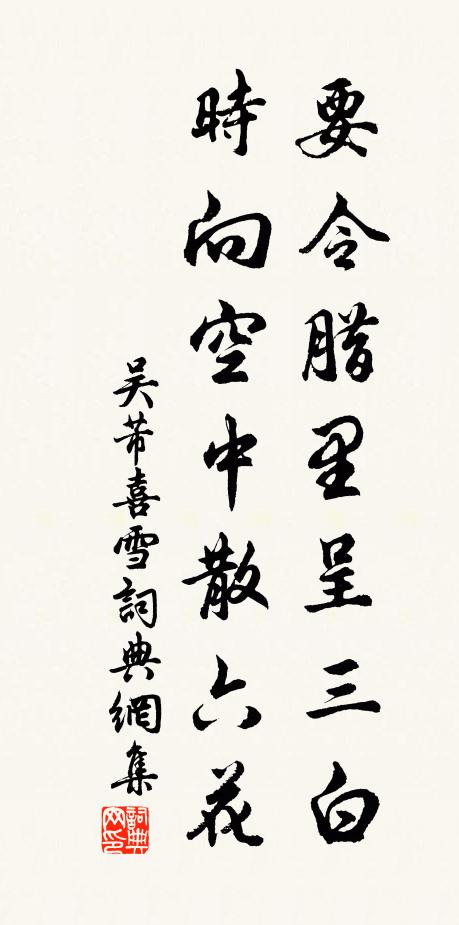 要令腊里呈三白
時向空中散六花
吴芾喜雪詞典網集
詞典网印